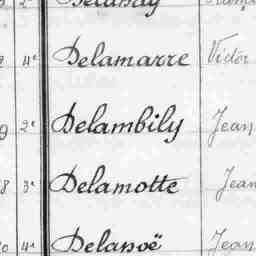 Delamarre Victor
9 2e Delambily Jean
8 3e Delamotte Jean
4e Delanoë Jean